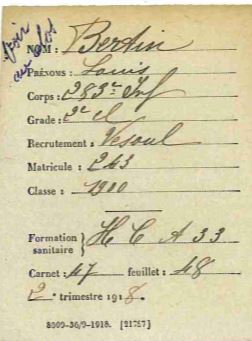 Voir
au dos
NOM : Berdin
PRÉNOMS : Louis
Corps : 283e Inf
Grade : 2e cl
Recrutement : Vesoul
Matricule : 243
Classe : 1910
Formation sanitaire } H C A 33
Carnet : 47 feuillet : 48
2e trimestre 1918.
8009-36/9-1918. [21757]